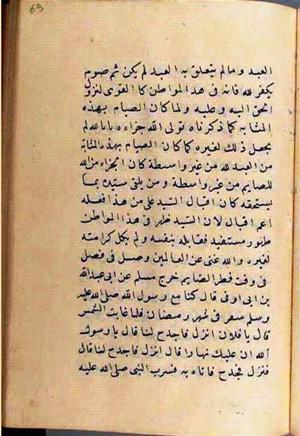 69
العبد وما لم يتعلق به العبد لم يكن ثم صوم
يكفر لله فانه فى هذا المواطن كالقوى لنزول
الحق اليه وعليه ولما كان الصيام بهذه
المثابة كما ذكرناه تولى الله جزاءه بانابته لم
يجعل ذلك لغيره كما كان الصيام بهذه المثابة
من العبد لله من غير واسطة كان الجزاء من الله
للصايم من غير واسطة ومن يلق سيده بما
يستحقه كان اقبال السيد على من هذا فعله
اعم اقبال لان السيد ظهر فى هذا المواطن
ظهور مستفيد فقابله بنفسه ولم يكل كرامته
لغيره والله غنى عن العالمين وصل فى فصل
فى وقت فطر الصايم خرج مسلم عن ابى عبد الله
بن ابى اوفى قال كنا مع رسول الله صلى الله عليه
وسلم سفر فى شهر رمضان فلما غابت الشمس
قال يا فلان انزل فاجدح لنا قال يا رسول
الله ان عليك نهارا قال انزل فاجدح لنا قال
فنزل فجدح فاتاه به فشرب النبى صلى الله عليه